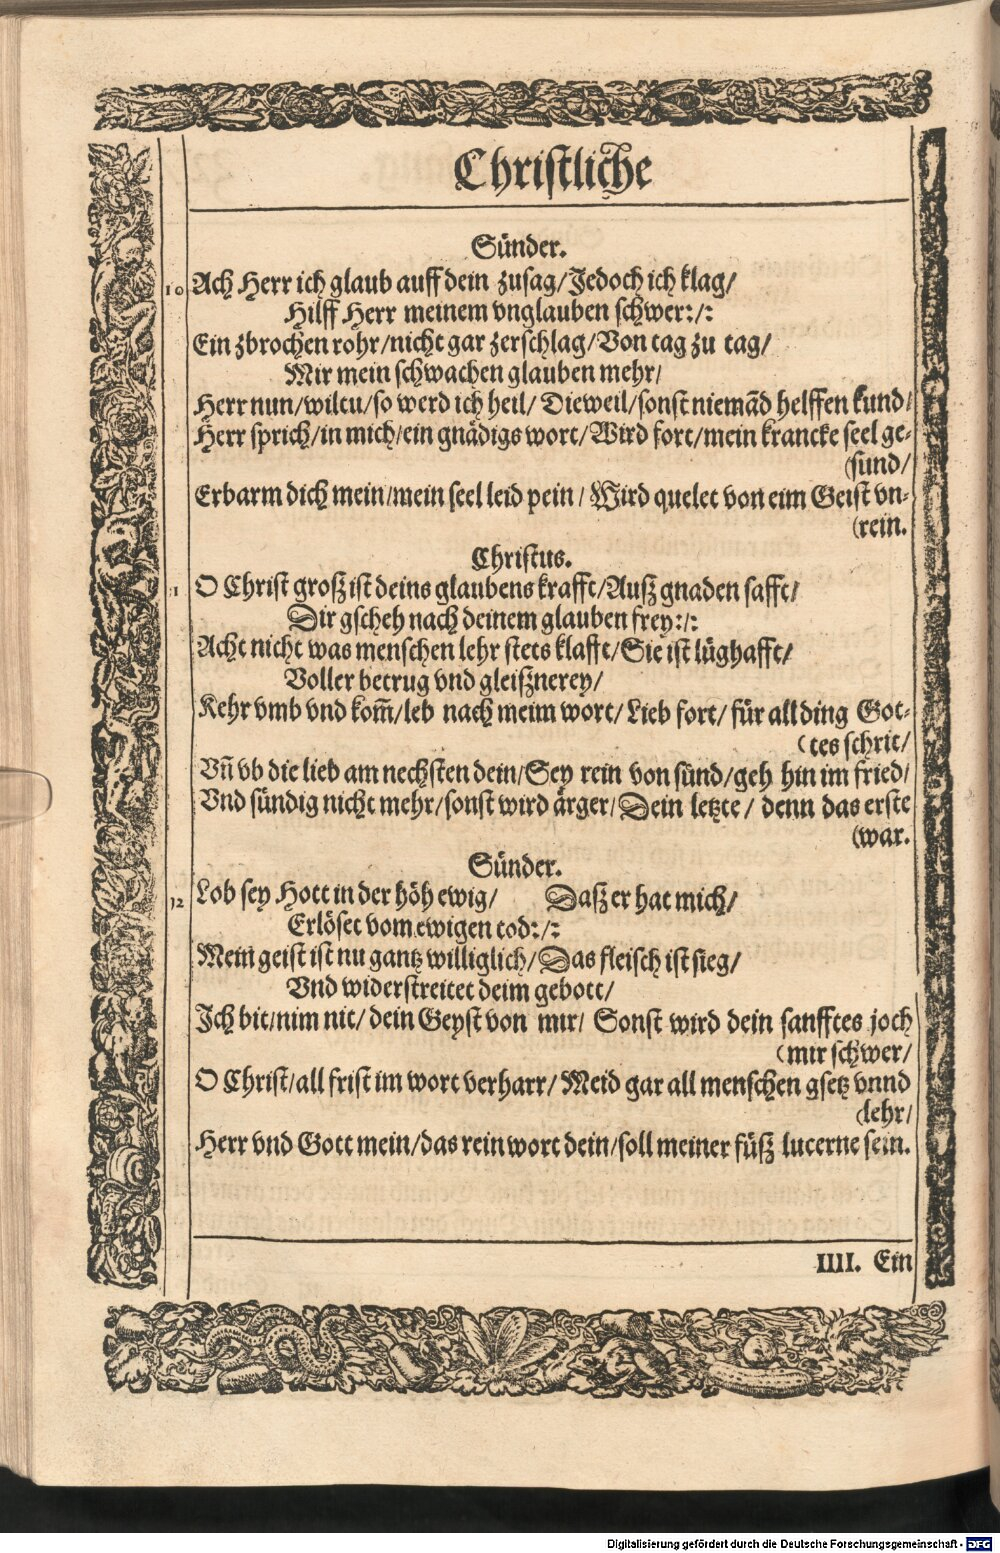 Christliche
Sünder.
10 Ach Herr ich glaub auff dein zusag/Jedoch ich klag/
Hilff Herr meinem vnglauben schwer:/:
Ein zbrochen rohr/nicht gar zerschlag/Von tag zu tag/
Mir mein schwachen glauben mehr/
Herr nun/wiltu/so werd ich heil/ Dieweil/sonst niemãd helffen kund/
Herr sprich/in mich/ein gnädigs wort/Wird fort/mein krancke seel ge-
(sund/
Erbarm dich mein/mein seel leid pein/ Wird quelet von eim Geist vn-
(rein.
Christus.
O Christ groß ist deins glaubens krafft/Auß gnaden safft/
Dir gscheh nach deinem glauben frey:/:
Acht nicht was menschen lehr stets klafft/Sie ist lüghafft/
Voller betrug vnd gleißnerey/
Kehr vmb vnd kom̃/leb nach meim wort/Lieb fort/ für all ding Got-
(tes schrit/
Vñ vb die lieb am nechsten dein/Sey rein von sünd/geh hin im fried/
Vnd sündig nicht mehr/sonst wird ärger/Dein letzte/ denn das erste
(war.
Sünder.
12 Lob sey Hott in der höh ewig/ Daß er hat mich/
Erlöset vom ewigen tod:/:
Mein geist ist nu gantz williglich/Das fleisch ist sieg/
Vnd widerstreitet deim gebott/
Jch bit/nim nit/ dein Geyst von mir/ Sonst wird dein sanfftes joch
(mir schwer/
O Christ/all frist im wort verharr/Meid gar all menschen gsetz vnnd
(lehr/
Herr vnd Gott mein/das rein wort dein/soll meiner füß lucerne sein.
IIII. Ein
Digitalisierung gefördert durch die Deutsche Forschungsgemeinschaft - DFG